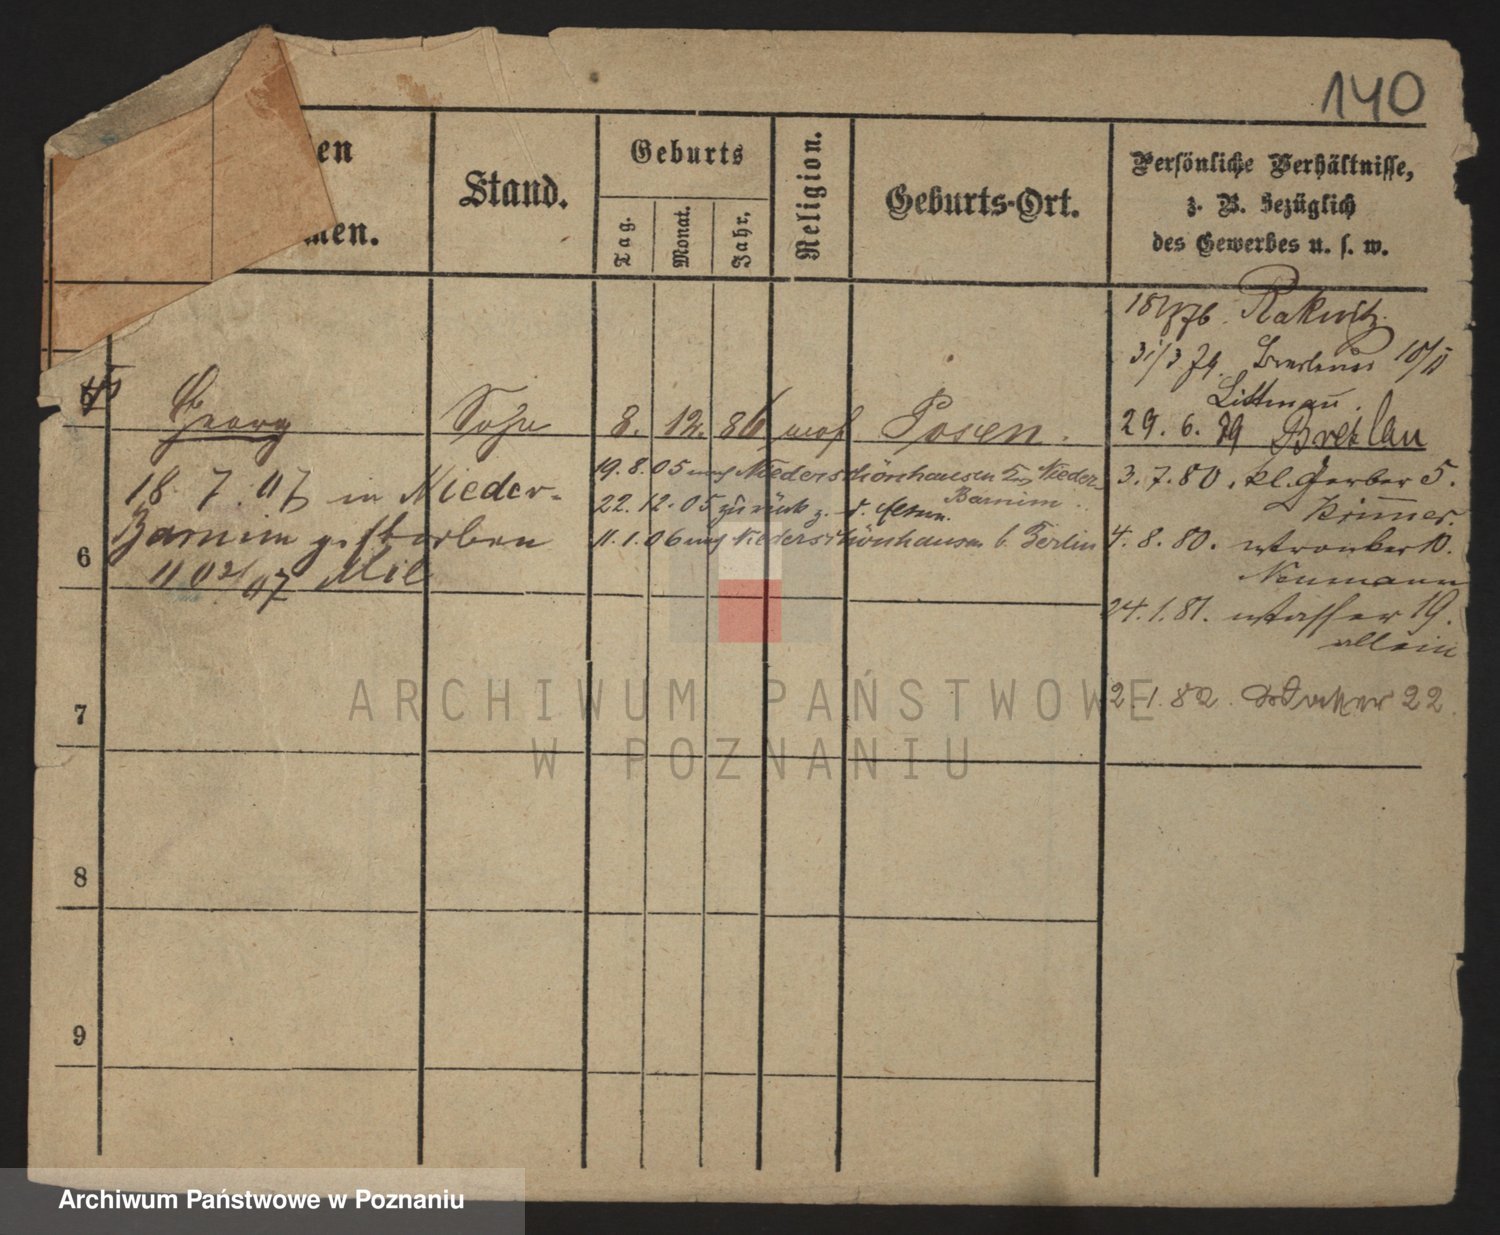 140
en
men.
Stand.
Geburts
Tag.
Monat.
Jahr.
Religion.
Geburts-Ort.
Persönliche Verhältnisse,
z. B. bezüglich
des Gewerbes u. s. w.
Rakwitz.
Littmann.
29. 6. 79 Breslau
Georg Sohn 8. 12. 86 mos Posen.
18 7. 07 in Nieder-
Barnim gestorben
19. 8. 05 nach Niederschönhausen Nieder-
Barnim
22. 12. 05 zurück z. d. Eltern.
11. 1. 06 nach Niederschönhausen b. Berlin
3. 7. 80. kl. Gerber 5.
4. 8. 80. Wronker 10.
Neumann
24. 1. 81. Wasser 19.
allein
2. 1. 82. 22
6
7
8
9
ARCHIWUM PAŃSTWOWE
W POZNANIU
Archiwum Państwowe w Poznaniu